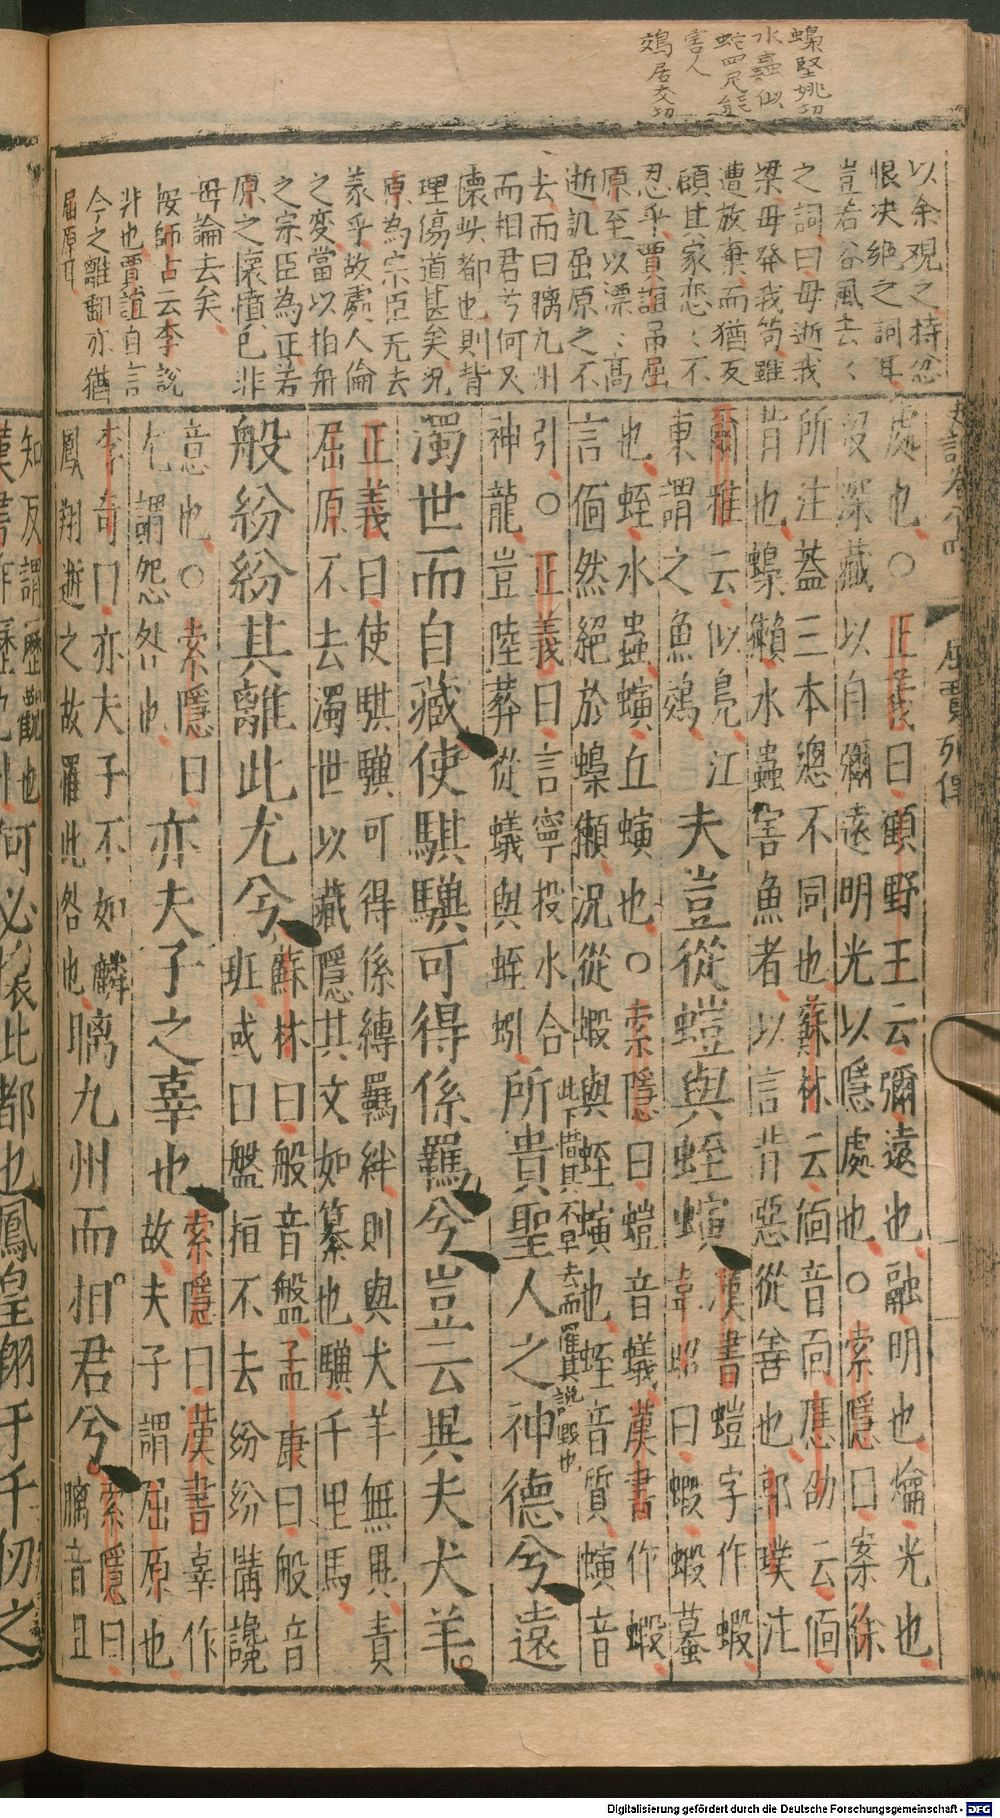 蟂堅姚切
水蟲似
蛇四尺能
害人
鵁居交切
以余觀之特忿
恨決絶之詞耳
豈若谷風去々
之詞曰毋逝我
梁毋發我笱雖
遭放棄而猶反
顧其家恋々不
忍乎賈誼吊屈
原至以漂々高
逝訊屈原之不
去而曰瞝九州
而相君兮何又
懐此都也則背
理傷道甚矣況
原為宗臣无去
義乎故處人倫
之変當以柏舟
之宗臣為正若
原之懷憤已非
毋論去矣
按師占云李説
非也賈誼自言
今之離郵亦猶
屈原耳
屈賈列傳
處也○正義曰顧野王云彌遠也融明也爚光也
没深藏以自彌遠明光以隱處也○索隱曰案徐
所注葢三本總不同也蘇林云偭音面應劭云偭
背也蟂獺水蟲害魚者以言背惡從善也郭璞注
爾雅云似鳧江
東謂之魚鵁
夫豈從螘與蛭螾
漢書螘字作蝦
韋昭曰蝦蝦蟇
也蛭水蟲螾丘螾也○索隱曰螘音蟻漢書作蝦
言偭然絕於蟂獺況從蝦與蛭螾也蛭音質螾音
引○正義曰言寧投水合
神龍豈陸葬從蟻與蛭蚓
所貴聖人之神德兮遠
此下惜其不早去而罹其説戮也
濁世而自藏使騏驥可得係羈兮豈云異夫犬羊
正義曰使騏驥可得係縛羈絆則與犬羊無異責
屈原不去濁世以藏隱其文如綦也驥千里馬
般紛紛其離此尤兮
蘇林曰般音盤孟康曰般音
班或曰盤桓不去紛紛搆讒
意也○索隱曰
尤謂怨咎也
亦夫子之辜也
索隱曰漢書辜作
故夫子謂屈原也
李奇曰亦夫子不如麟
鳳翔逝之故罹此咎也
瞝九州而相君兮
索隱曰
瞝音丑
知反謂歷觀也
漢書作歷也
何必懷此都也鳳皇翔于千仞之
Digitalisierung gefördert durch die Deutsche Forschungsgemeinschaft - DFG